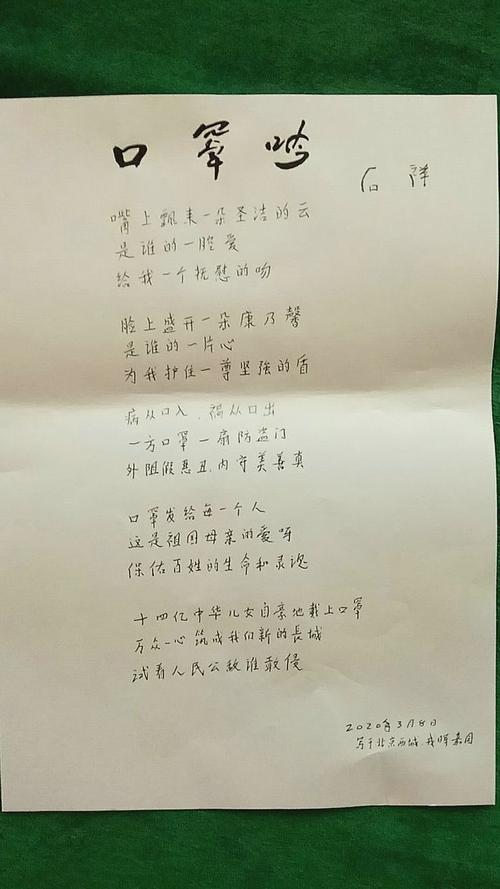 口罩吟
石祥
嘴上飘来一朵圣洁的云
是谁的一腔爱
给我一个抚慰的吻
脸上盛开一朵康乃馨
是谁的一片心
为我护住一尊坚强的盾
病从口入，祸从口出
一方口罩一扇防盗门
外阻假恶丑，内守美善真
口罩发给每一个人
这是祖国母亲的爱呀
保佑百姓的生命和灵魂
十四亿中华儿女自亲地戴上口罩
万众一心筑成我们新的長城
试看人民公敌谁敢侵
2020年3月8日
写于北京西城